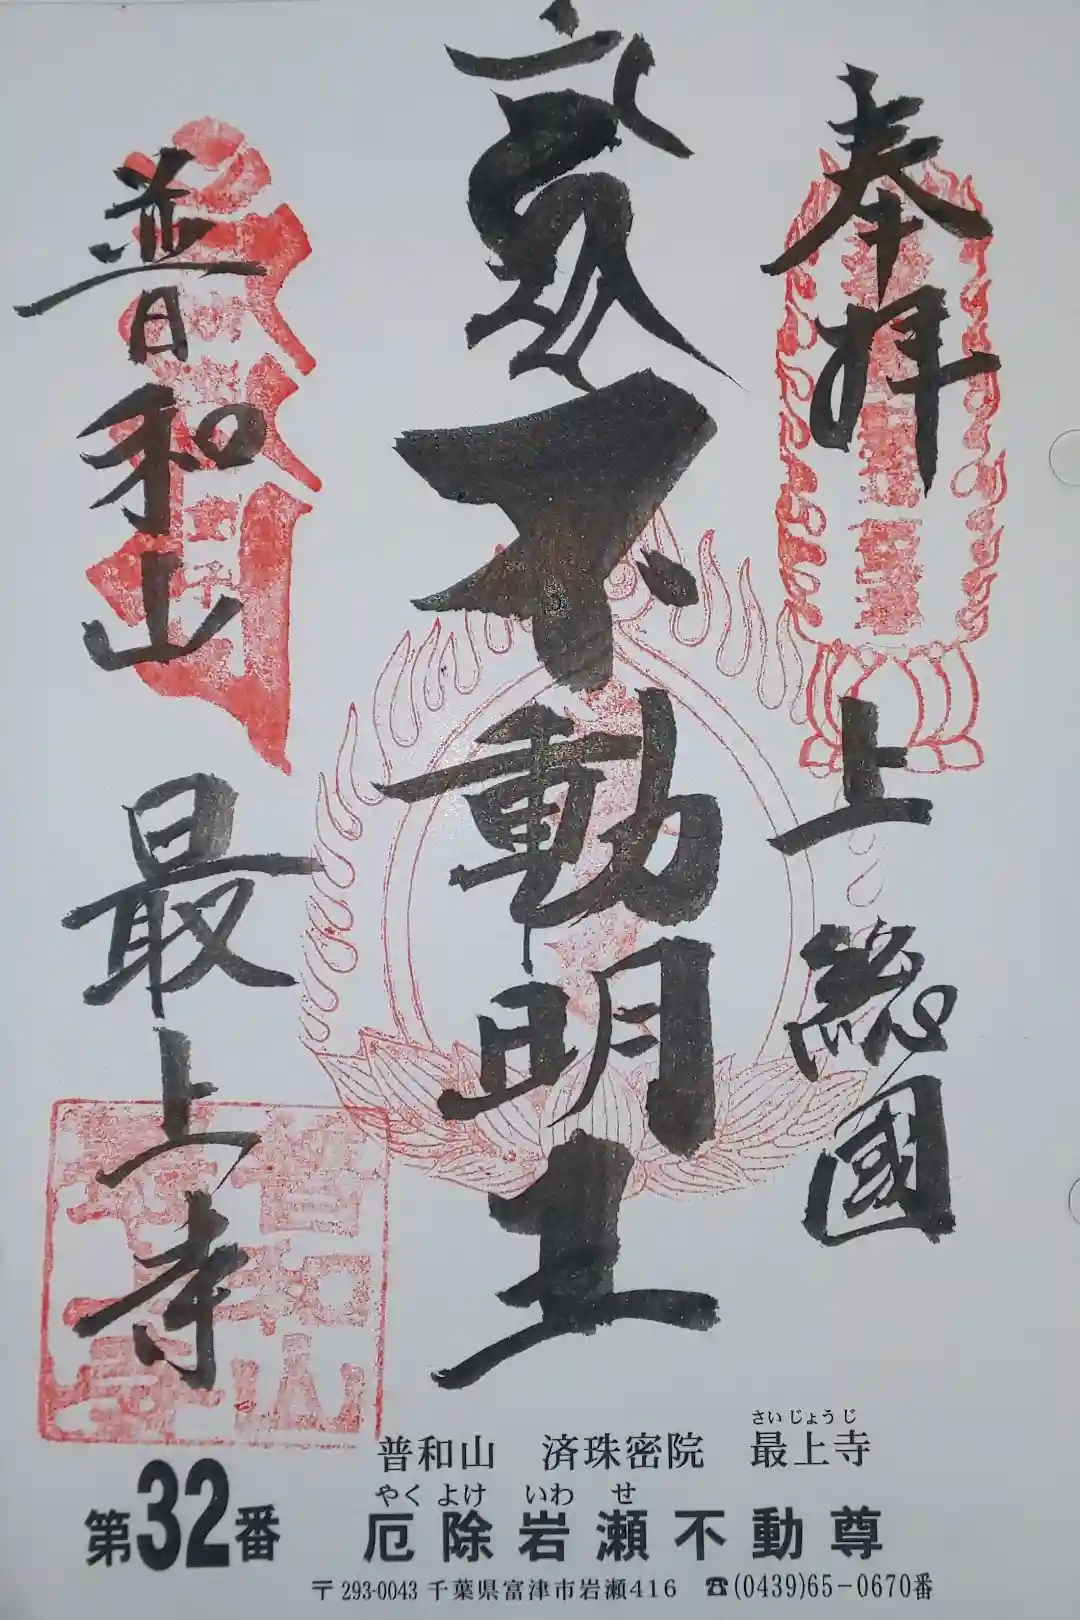 奉拝
上總國
不動明王
普和山
最上寺
普和山　済珠密院　最上寺
さいじょうじ
第32番
やくよけ　いわせ
厄除岩瀬不動尊
〒293-0043 千葉県富津市岩瀬416　☎(0439)65-0670番